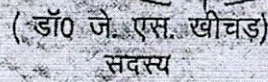 ( डॉ0 जे. एस. खीचड़)
सदस्य